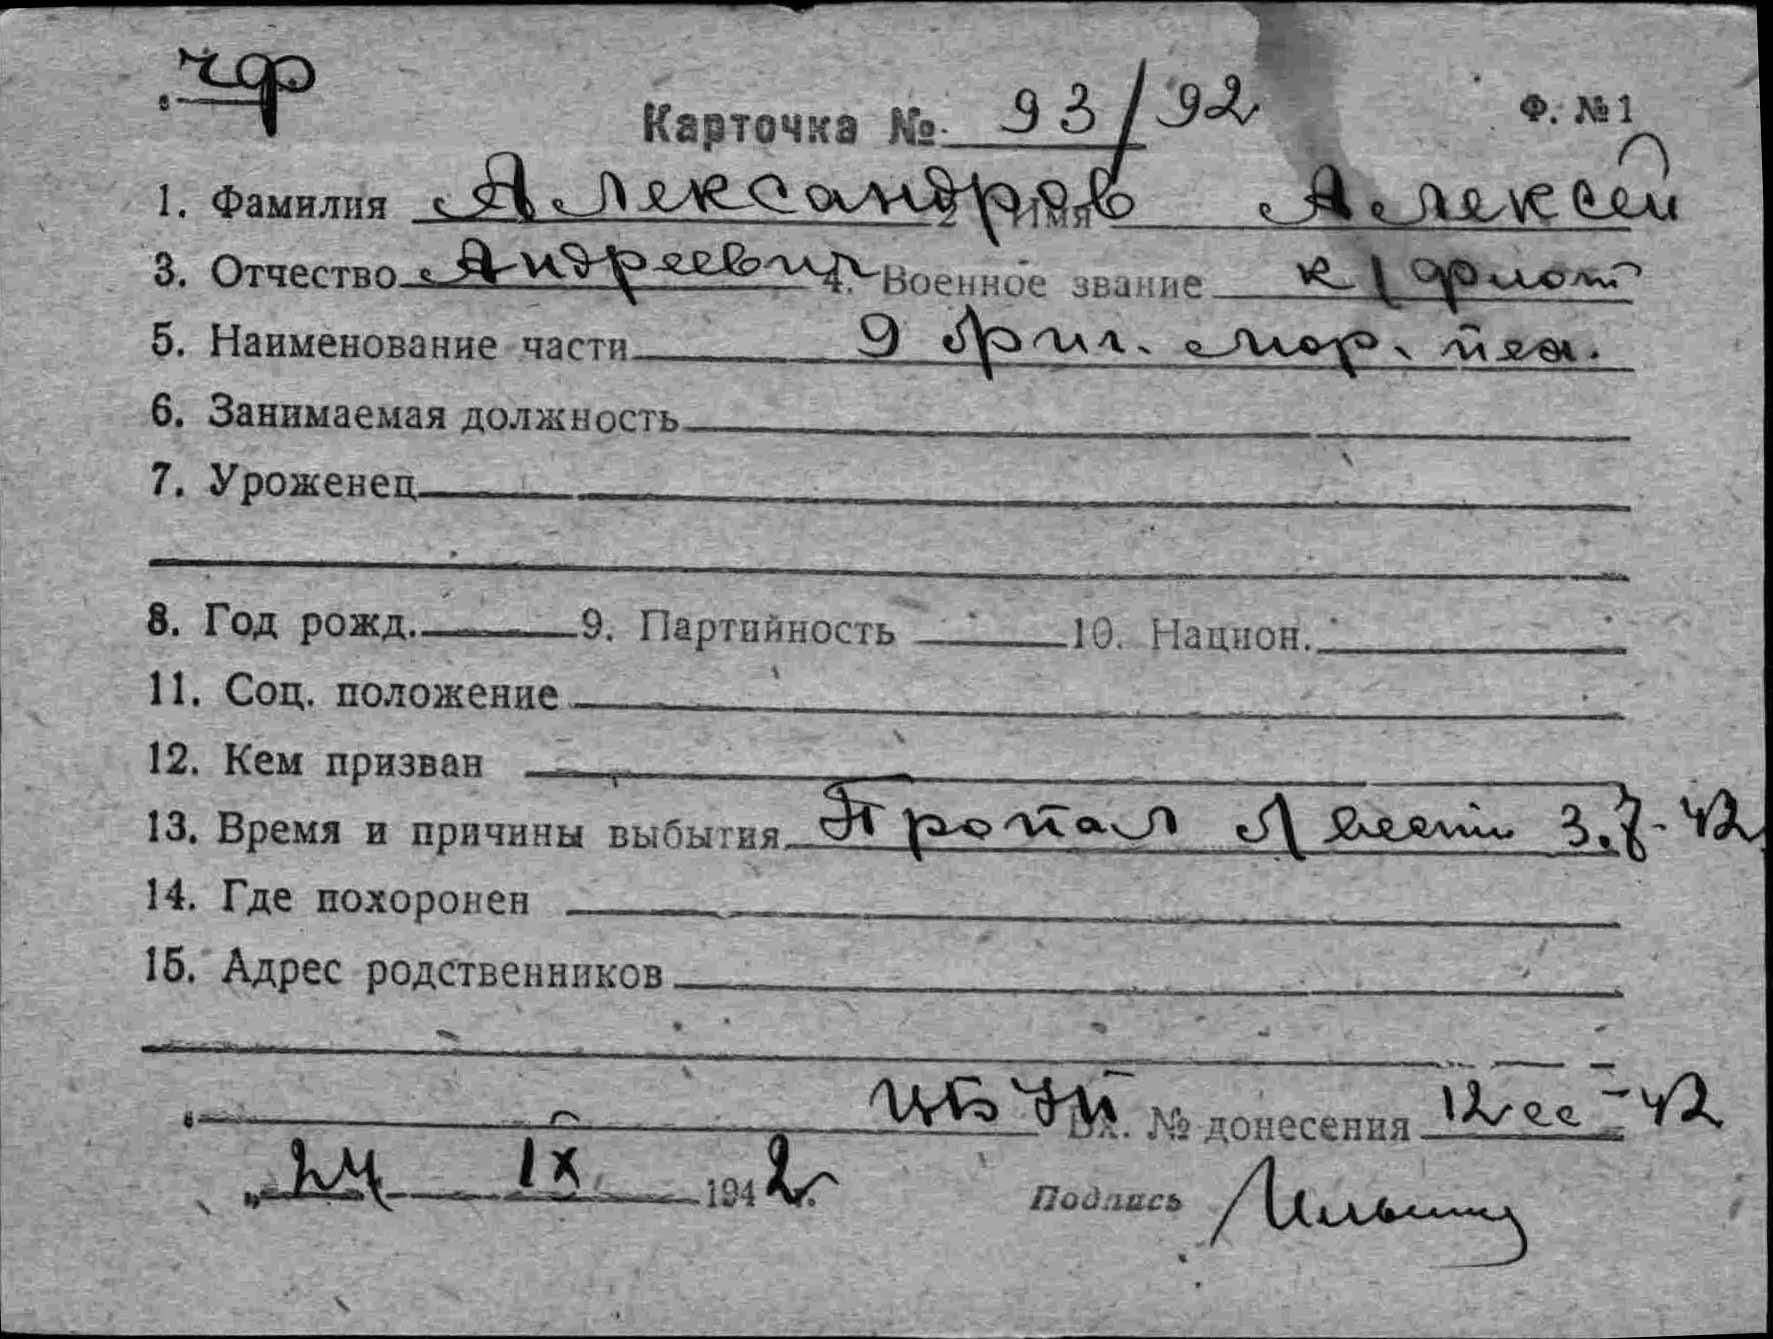 чф
Карточка № 93/92 Ф. №1
1. Фамилия Александров 2 Имя Алексей
3. Отчество Андреевич 4. Военное звание к/флот
5. Наименование части 9 бриг. мор. пех.
6. Занимаемая должность
7. Уроженец
8. Год рожд. 9. Партийность 10. Национ.
11. Соц. положение
12. Кем призван
13. Время и причины выбытия Пропал б/вести 3.7-42
14. Где похоронен
15. Адрес родственников
Вх. № донесения 12сс-42
„24 IX 1942.
Подпись